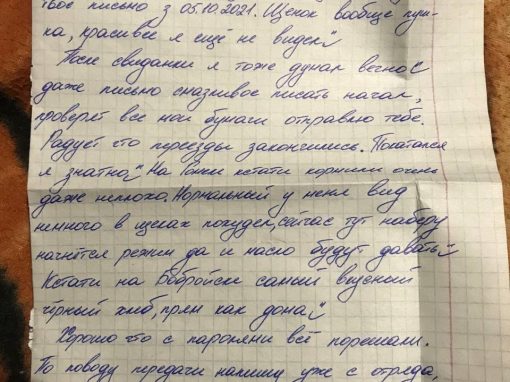 твоё письмо з 05.10.2021. Щенок вообще пуш-
ка, красивее я ещё не видел
После свиданки я тоже думал
даже письмо писать начал,
проверят все мои бумаги отправлю тебе.
Радует что переезды закончились. Покатался
я знатно На Гомки кстати кормили очень
даже неплохо. Нормальный у меня вид
немного в щеках похудел, сейчас тут наберу
начнётся режим да и масло будут давать
Кстати на Бобруйске самый вкусный
чёрный хлеб, прям как дома
Хорошо что с паролями всё порешали.
По поводу передачи напишу уже с отряда,